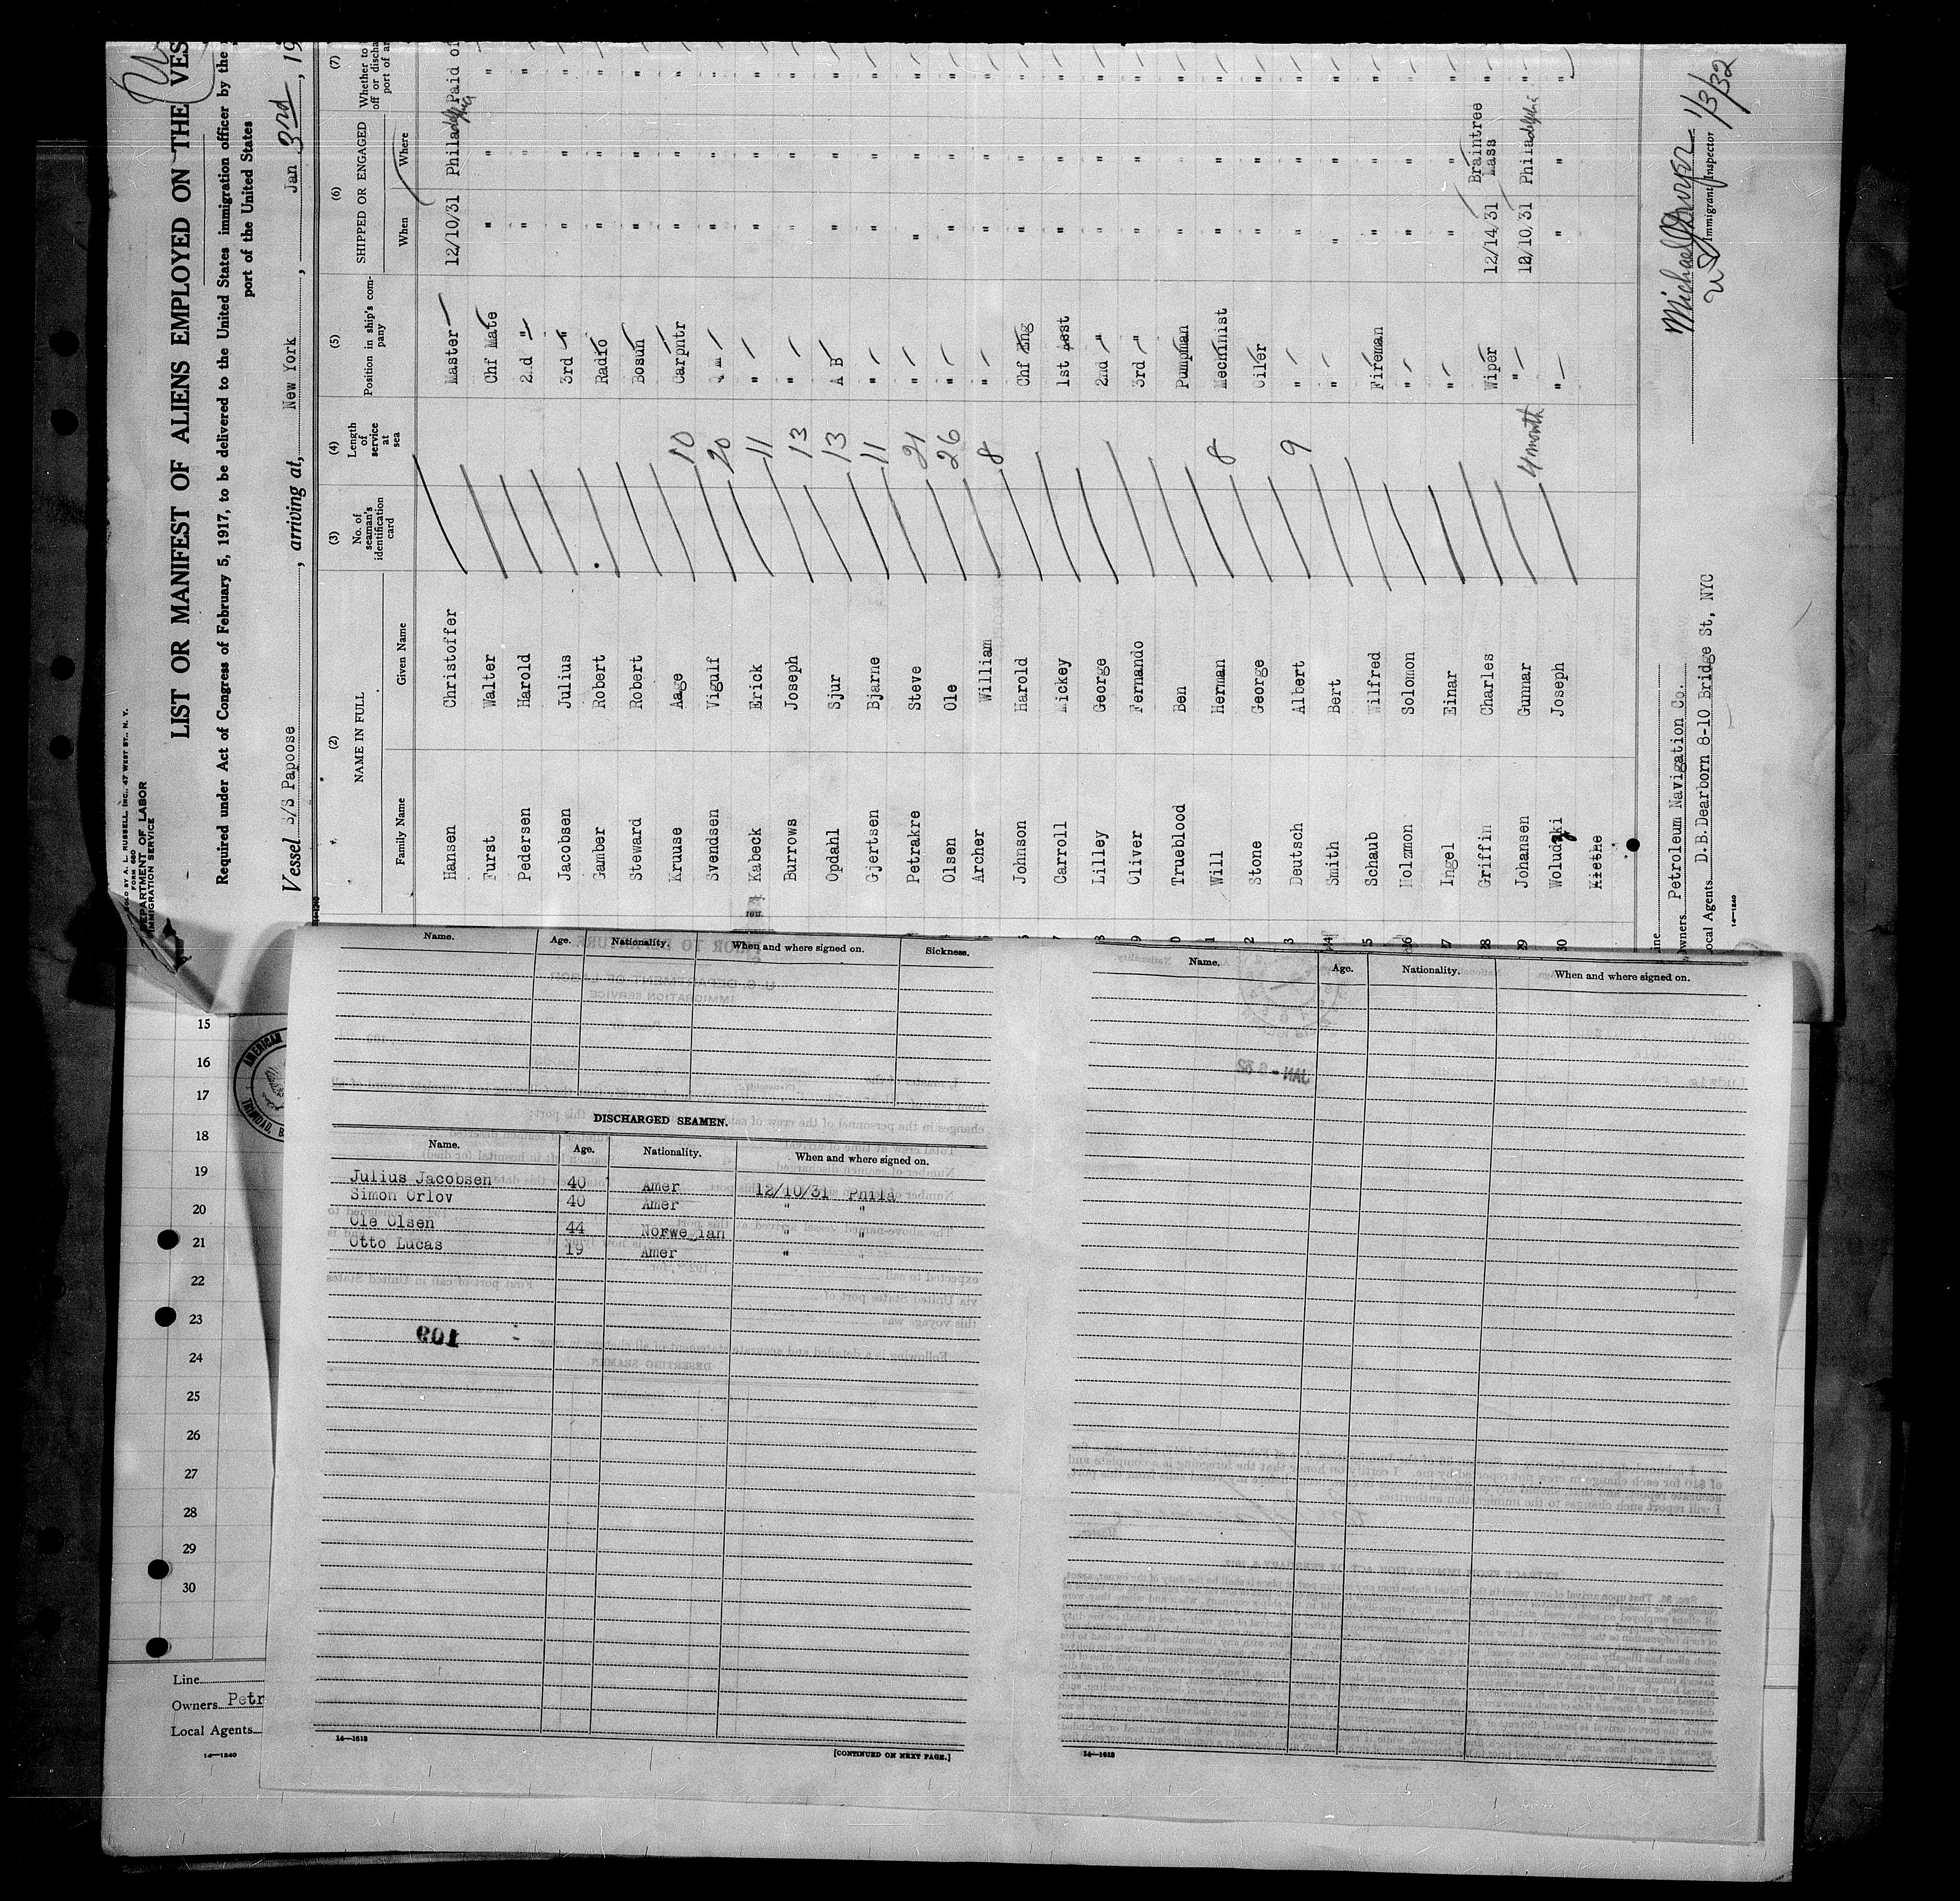 SOLD BY A. L. RUSSELL, INC., 47 WEST ST., N. Y.
FORM 680
DEPARTMENT OF LABOR
IMMIGRATION SERVICE
LIST OR MANIFEST OF ALIENS EMPLOYED ON THE VES
Required under Act of Congress of February 5, 1917, to be delivered to the United States immigration officer by the
port of the United States
Vessel S/S Papoose, arriving at, New York, Jan 3rd, 19
(2) (3) (4) (5) (6) (7)
NAME IN FULL No. of seaman's identification card Length of service at sea Position in ship's company SHIPPED OR ENGAGED Whether to
off or discha
port of ar
Family Name Given Name When Where
Hansen Christoffer Master 12/10/31 Philadelphia Paid of
Furst Walter Chf Mate " " "
Pedersen Harold 2nd " " " "
Jacobsen Julius 3rd " " " "
Gamber Robert Radio " " "
Steward Robert Bosun " " "
Kruuse Aage 10 Carpntr " " "
Svendsen Vigulf 20 Q M " " "
Kabeck Erick 11 " " " "
Burrows Joseph 13 " " " "
Opdahl Sjur 13 A B " " "
Gjertsen Bjarne 11 " " " "
Petrakre Steve 21 " " " "
Olsen Ole 26 " " " "
Archer William 8 " " " "
Johnson Harold Chf Eng " " "
Carroll Mickey 1st Asst " " "
Lilley George 2nd " " " "
Oliver Fernando 3rd " " " "
Trueblood Ben Pumpman " " "
Will Herman 8 Mechinist " " "
Stone George Oiler " " "
Deutsch Albert 9 " " " "
Smith Bert " " " "
Schaub Wilfred Fireman " " "
Holzmon Solomon " " " "
Ingel Einar " " " "
Griffin Charles Wiper 12/14/31 Braintree Mass "
Johansen Gunnar 4 month " 12/10/31 Philadelphia "
Woludzki Joseph " " " "
Kiethe
Line
Owners Petroleum Navigation Co.
Local Agents D.B.Dearborn 8-10 Bridge St, NYC
14—1240
Immigrant Inspector
1/3/32
Name. Age. Nationality. When and where signed on. Sickness.
DISCHARGED SEAMEN.
Name. Age. Nationality. When and where signed on.
Julius Jacobsen 40 Amer 12/10/31 Phila
Simon Orlov 40 Amer " "
Ole Olsen 44 Norwegian " "
Otto Lucas 19 Amer " "
14—1613
[CONTINUED ON NEXT PAGE.]
Name. Age. Nationality. When and where signed on.
14—1613
15
16
17
18
19
20
21
22
23
24
25
26
27
28
29
30
Line
Owners Petr
Local Agents
14—1240
AMERICAN
TRINIDAD, B